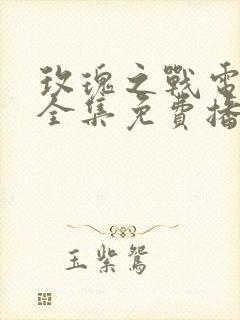 玫瑰之戰電
全集免費播
玉紫鴛